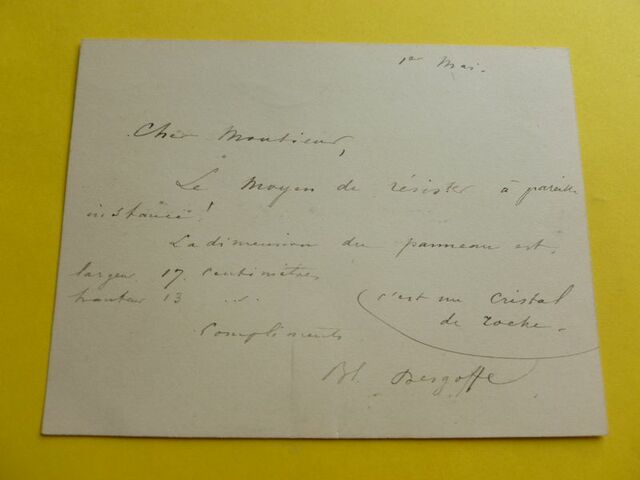 1er Mai.
Cher Monsieur,
Le moyen de résister à pareille
instance!
La dimension du panneau est,
largeur 17. centimètres
hauteur 13 "
c'est un cristal
de roche.
Compliments
Bl. Desgoffe